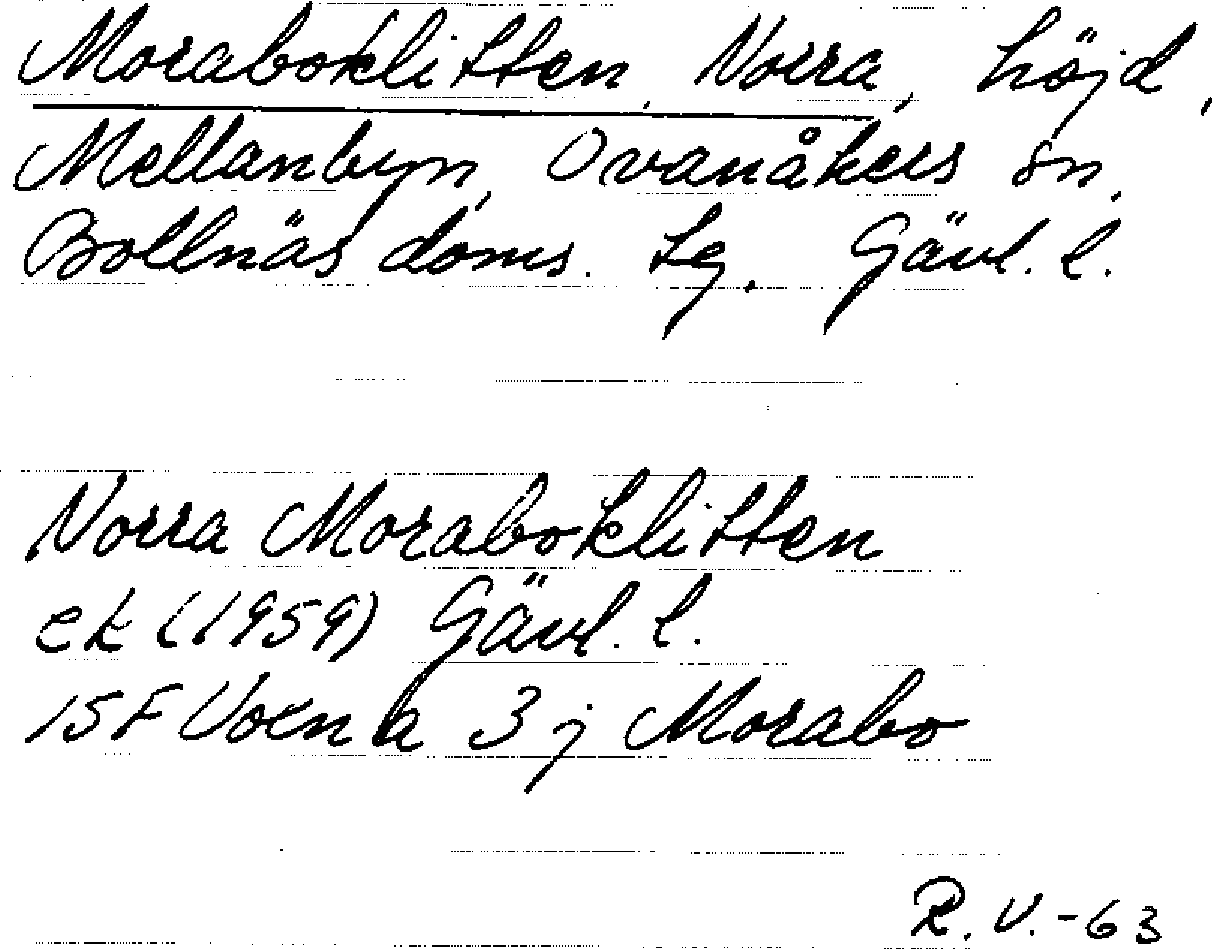 Moraboklitten, Norra, höjd,
Mellanbyn, Ovanåkers sn,
Bollnäs doms. tg, Gävl. l.
Norra Moraboklitten
ek (1959) Gävl. l.
15F Voxna 3 j Morabo
R. V. -63